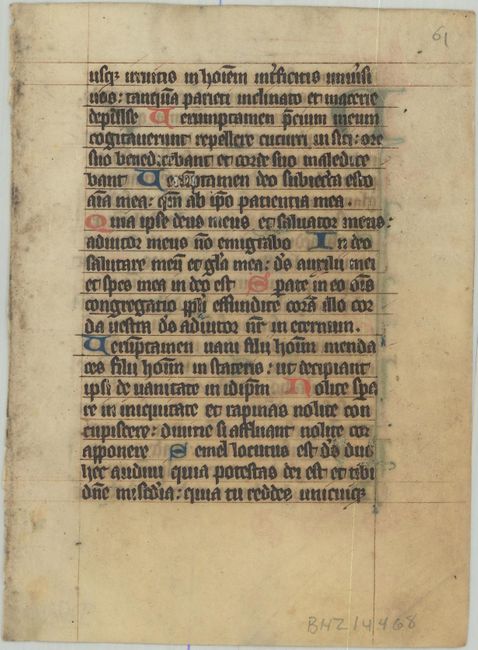 61
usq; irruitis in hoiem int̄ficitis uniūsi
uos : tanqua parieti inclinato et macerie
depulse Verumptamen p̄cium meum
cogitauerunt repellere cucurri in siti : ore
suo benedicebant et corde suo maledice
bant Verūptamen deo subiecta esto
aīa mea : qm̄ ab ipo patientia mea .
Quia ipse deus meus et saluator meus :
adiutor meus nō emigrabo In deo
salutare meū et glīa mea : ds̄ auxilii mei
et spes mea in deo est Sperate in eo om̄s
congregatio ppl̄i effundite corā illo cor
da uestra ds̄ adiutor nr̄ in eternum .
Verūptamen uani filii hom̄ menda
ces filii hom̄ in stateris : ut decipiant
ipsi de uanitate in idip̄m Nolite spe
re in iniquitate et rapinas nolite con
cupiscere : diuitie si affluant nolite cor
apponere Semel locutus est ds̄ duo
hec audiui quia potestas dei est et tibi
dn̄e mis̄dīa : quia tu reddes unicuiq;
BHZ14468